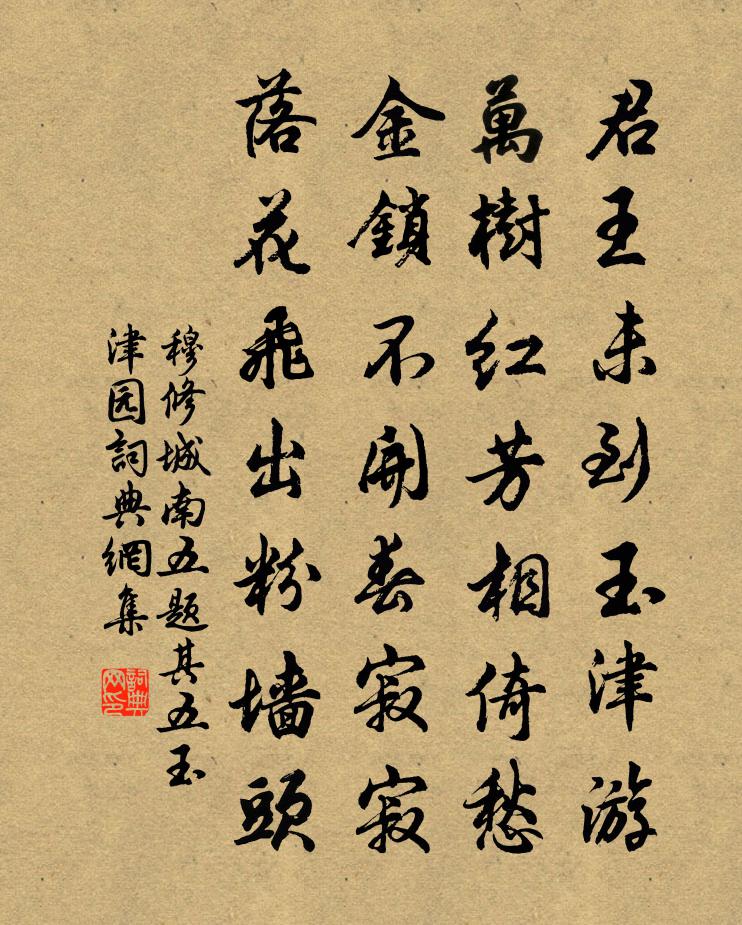 君王未到玉津游
萬樹红芳相倚愁
金鎖不開春寂寂
落花飛出粉墙頭
穆修城南五题其五玉
津园詞典網集
詞典
网印